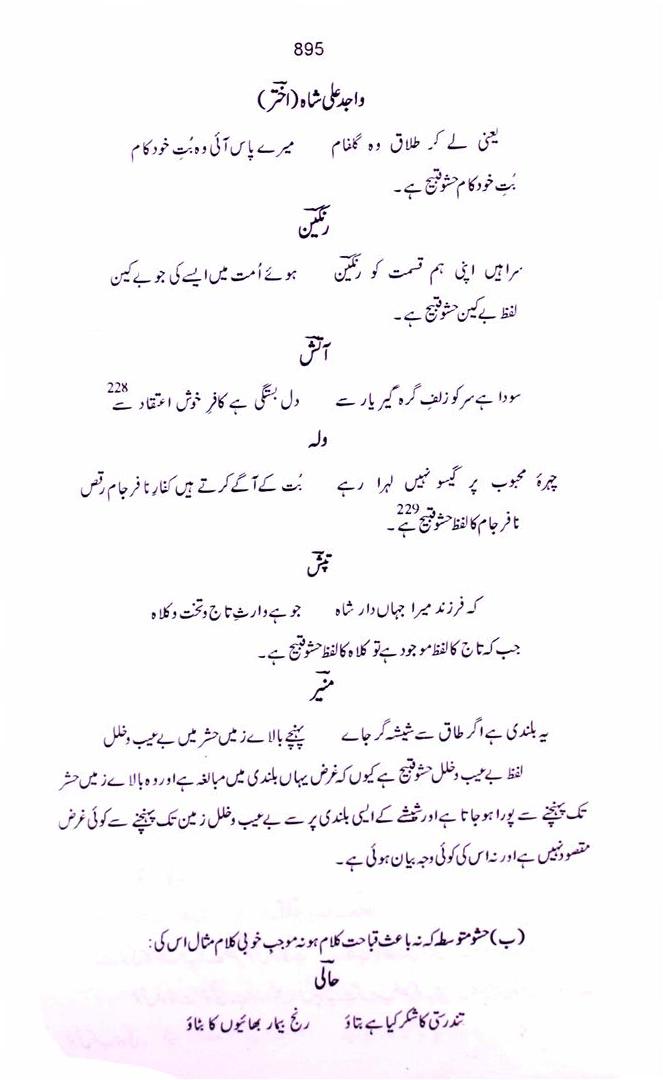 895
واجد علی شاہ (اختر)
یعنی لے کر طلاق وہ گلفام میرے پاس آئی وہ بُتِ خودکام
بُتِ خودکام حشو قبیح ہے۔
رنگین
سراہیں اپنی ہم قسمت کو رنگین ہوئے اُمت میں ایسے کی جو بے کین
لفظ بے کین حشو قبیح ہے۔
آتش
سودا ہے سر کو زلفِ گرہ گیر یار سے دل بستگی ہے کافرِ خوش اعتقاد سے 228
ولہ
چہرۂ محبوب پر گیسو نہیں لہرا رہے بُت کے آگے کرتے ہیں کفارِ نافرجام رقص
نافرجام کا لفظ حشو قبیح ہے 229۔
تپش
کہ فرزند میرا جہاں دار شاہ جو ہے وارثِ تاج و تخت و کلاہ
جب کہ تاج کا لفظ موجود ہے تو کلاہ کا لفظ حشو قبیح ہے۔
منیر
یہ بلندی ہے اگر طاق سے شیشہ گر جاے پہنچے بالاے زمیں حشر میں بے عیب و خلل
لفظ بے عیب و خلل حشو قبیح ہے کیوں کہ غرض یہاں بلندی میں مبالغہ ہے اور وہ بالاے زمیں حشر
تک پہنچنے سے پورا ہو جاتا ہے اور شیشے کے ایسی بلندی پر سے بے عیب و خلل زمین تک پہنچنے سے کوئی غرض
مقصود نہیں ہے اور نہ اس کی کوئی وجہ بیان ہوئی ہے۔
(ب) حشو متوسط کہ نہ باعث قباحت کلام ہو نہ موجب خوبی کلام مثال اس کی:
حالی
تندرستی کا شکر کیا ہے بتاؤ رنج بیمار بھائیوں کا بٹاؤ